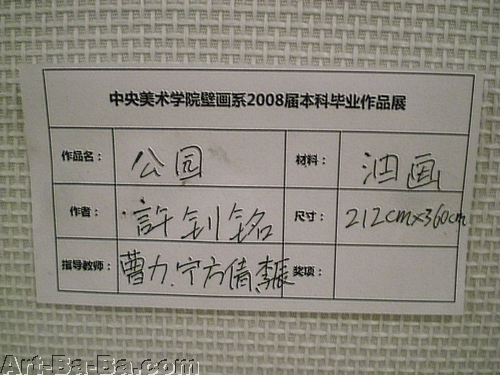 中央美术学院壁画系2008届本科毕业作品展
作品名： 公园 材料： 油画
作者： 許钊銘 尺寸： 212cm×360cm
指导教师： 曹力.宁方倩.李振 奖项：
Art-Ba-Ba.com